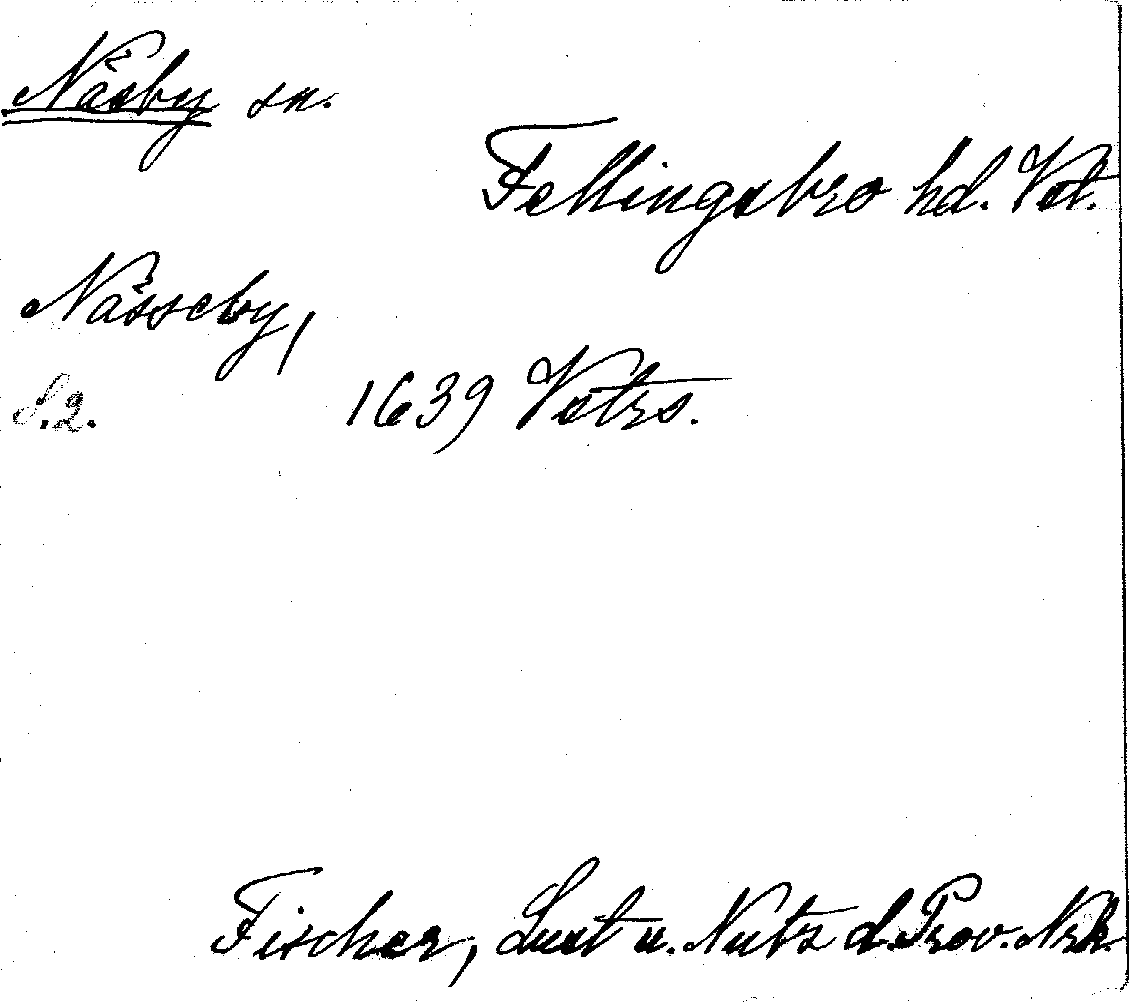 Näsby sn.
Fellingsbro hd. Vstl.
Nässeby,
S.2. 1639 Vstrs.
Fischer, Lust u. Nutz d. Prov. Nrk.